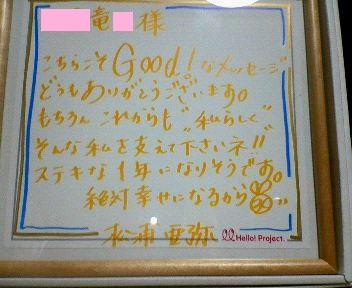 竜 様
こちらこそGood!なメッセージ
どうもありがとうございます。
もちろんこれからも"私らしく"
そんな私を支えて下さいネ!!
ステキな1年になりそうです。
絶対幸せになるから
松浦亜弥
Hello! Project.